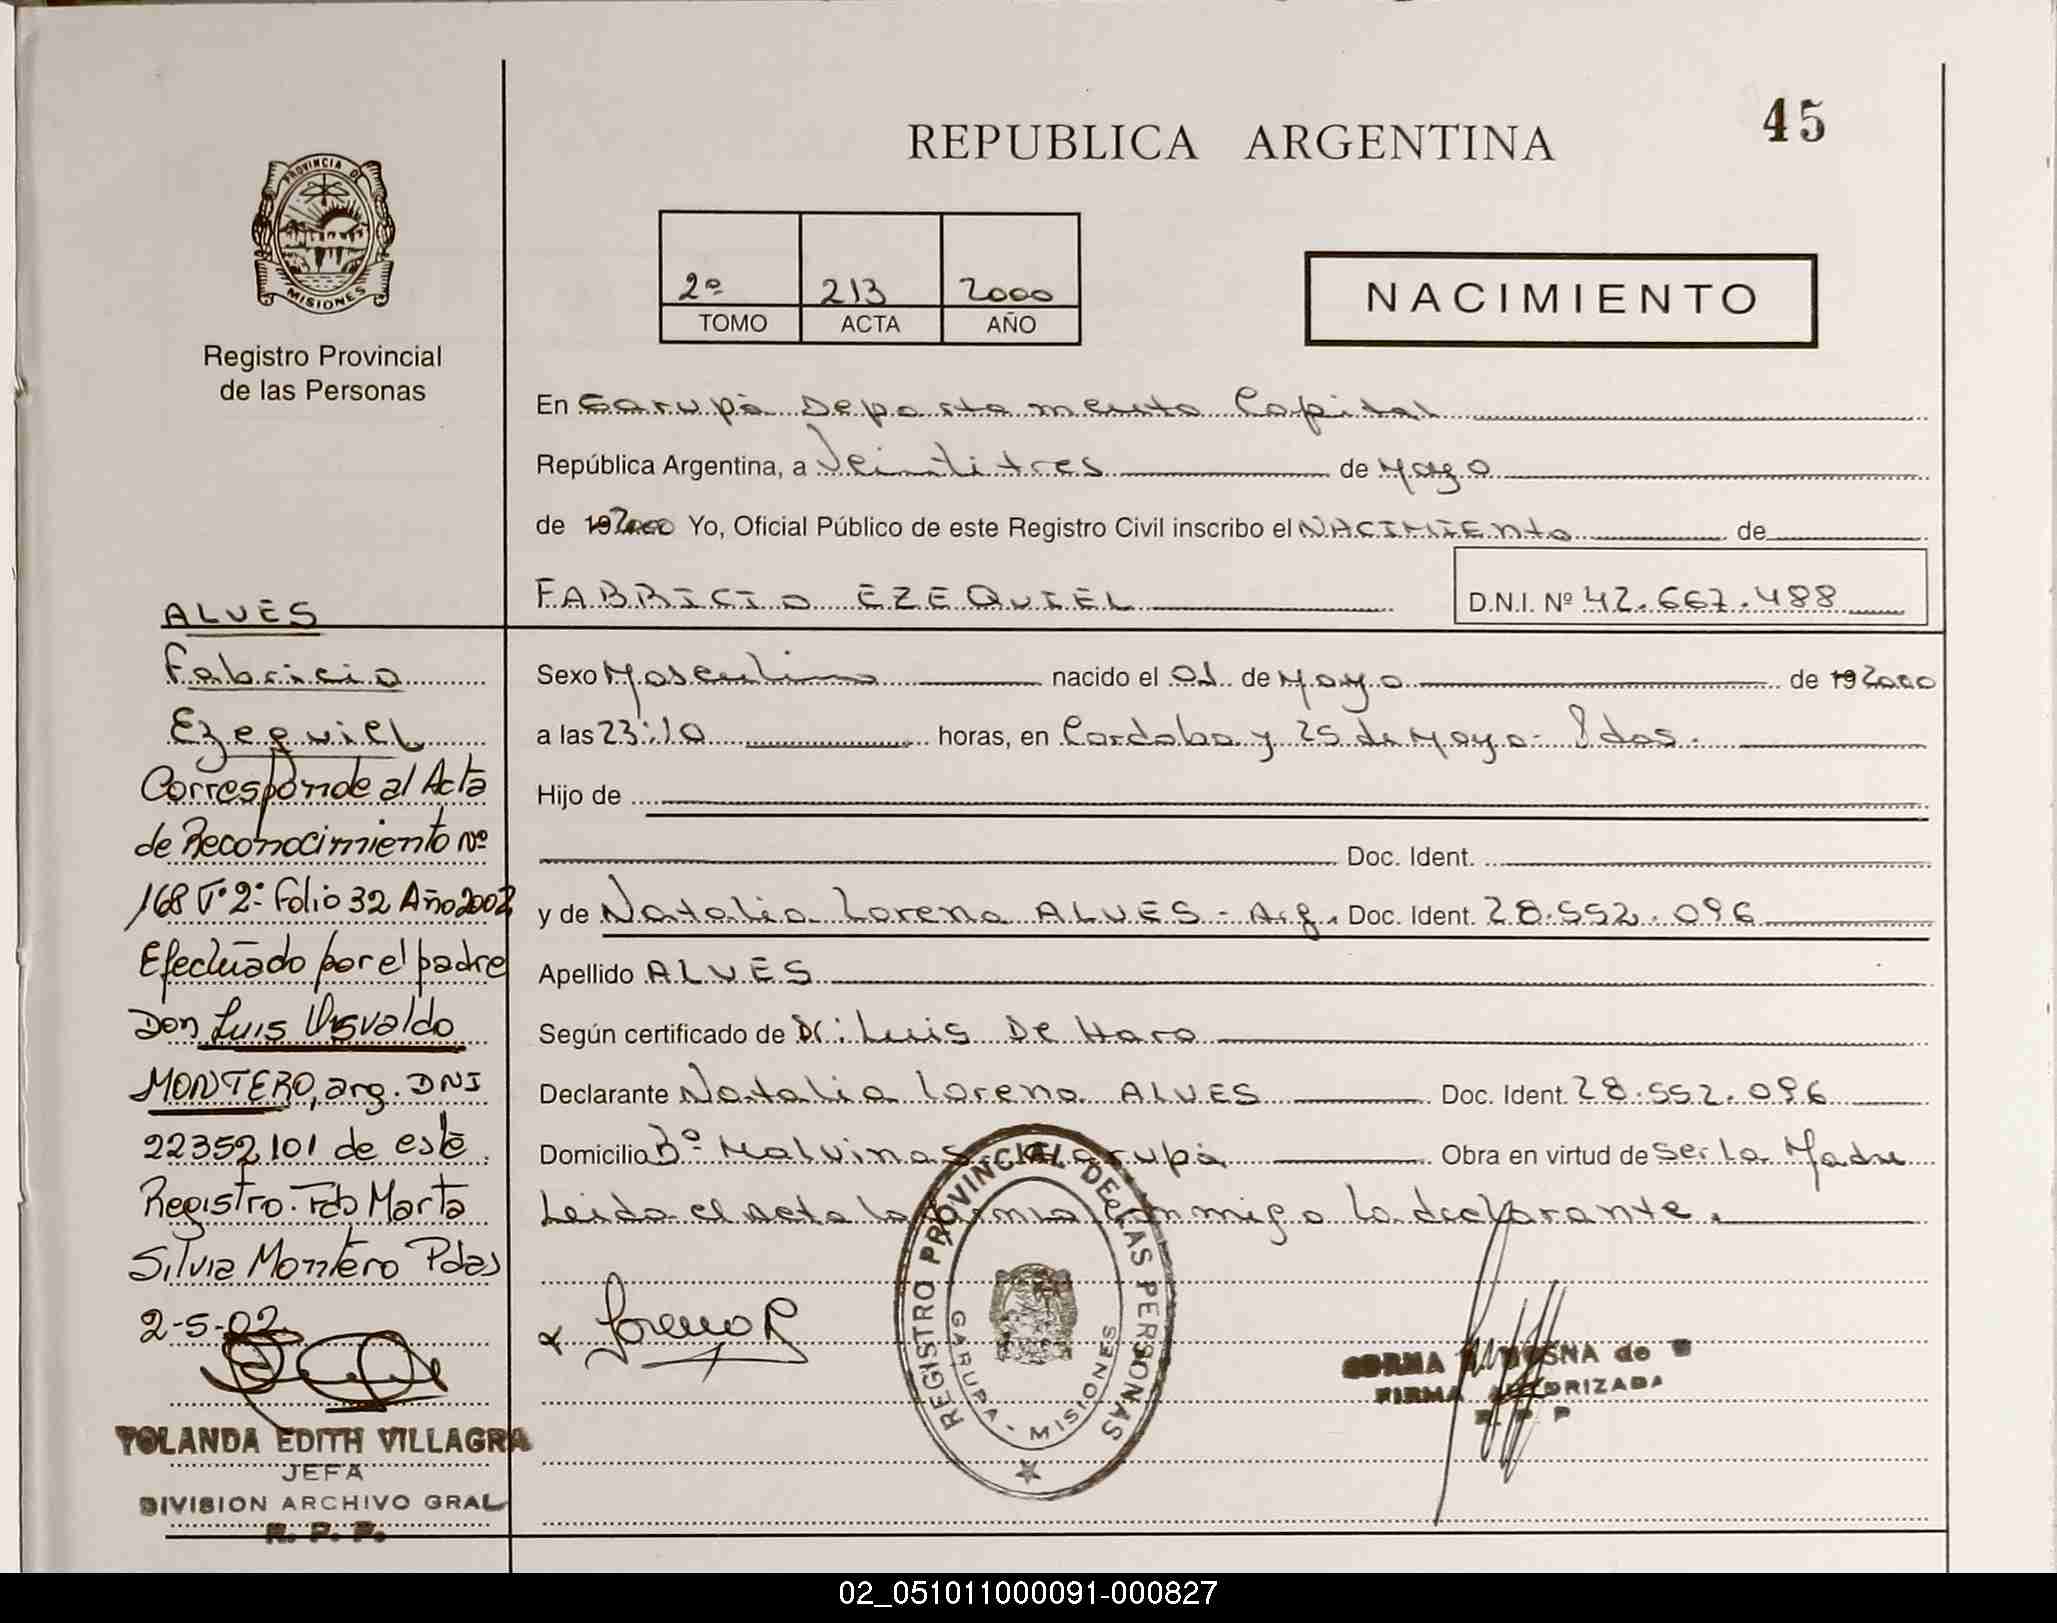 45
REPUBLICA ARGENTINA
PROVINCIA DE
MISIONES
Registro Provincial
de las Personas
2º 213 2000
TOMO ACTA AÑO
NACIMIENTO
En Garupà Departamento Capital
República Argentina, a Veintitres de Mayo
de 19 2000 Yo, Oficial Público de este Registro Civil inscribo el NACIMIENto de
FABRICIO EZEQUIEL
D.N.I. Nº 42.667.488
Sexo Masculino nacido el 01 de Mayo de 19 2000
a las 23:10 horas, en Cordoba y 25 de Mayo - Pdas.
Hijo de
Doc. Ident.
y de Natalia Lorena ALVES - Arg. Doc. Ident. 28.552.096
Apellido ALVES
Según certificado de Dr: Luis De Haro
Declarante Natalia Lorena ALVES Doc. Ident. 28.552.096
Domicilio Bº Malvinas Garupà Obra en virtud de Ser la Madre
Leida el acta la firma conmigo la declarante.
Loreno R
REGISTRO PROVINCIAL DE LAS PERSONAS
GARUPA - MISIONES
de
FIRMA AUTORIZADA
R. P. P
ALVES
Fabricio
Ezequiel
Corresponde al Acta
de Reconocimiento Nº
168 Tº 2º Folio 32 Año 2002
Efectuado por el padre
Don Luis Osvaldo
MONTERO, arg. DNI
22352101 de este
Registro. Fdo Marta
Silvia Montero Pdas
2-5-02
YOLANDA EDITH VILLAGRA
JEFA
DIVISION ARCHIVO GRAL
R. P. P.
02_051011000091-000827